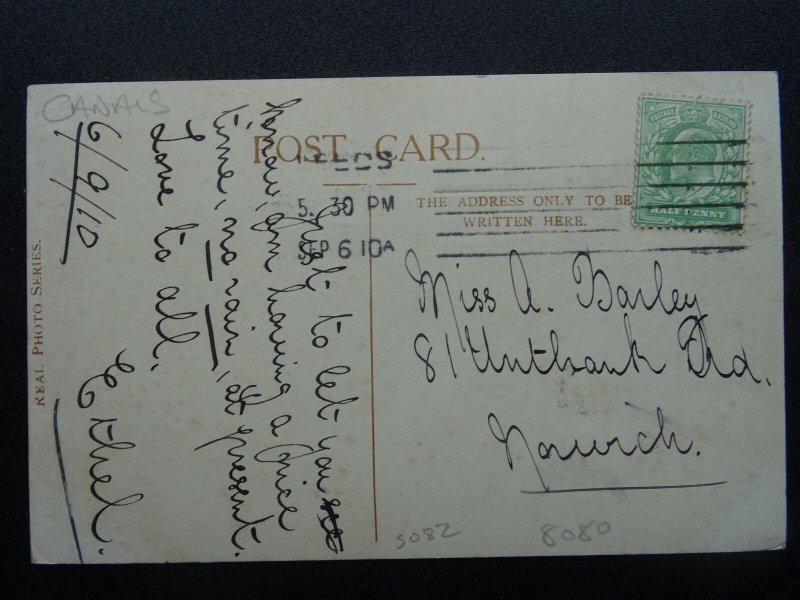 CANALS
POST CARD.
THE ADDRESS ONLY TO BE
WRITTEN HERE.
POSTAGE REVENUE
HALF PENNY
5. 30 PM
SEP 6 10A
REAL PHOTO SERIES.
6/9/10
Just to let you
know, am having a nice
time, no rain, at present.
Love to all.
Ethel.
Miss A. Barley
81 Unthank Rd.
Norwich.
5082
8080